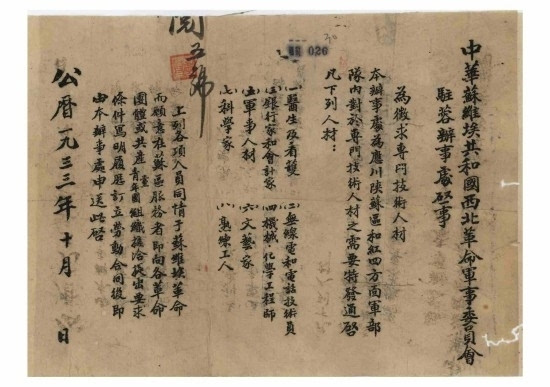 中華蘇維埃共和國西北革命軍事委員會
駐蓉辦事處啓事
為徵求專門技術人材
本辦事處為應川陝蘇區和紅四方面軍部
隊內對於專門技術人材之需要特發通啓
凡下列人材：
(一)醫生及看護 (二)無線電和電話技術員
(三)銀行家和會計家 (四)機械、化學工程師
(五)軍事人材 (六)文藝家
(七)科學家 (八)熟練工人
上列各項人員同情于蘇維埃革命
而願意在蘇區服務者即向各革命
團體或共產黨青年團組織接洽提出要求
條件寫明履歷訂立勞動合同後即
由本辦事處申送此啓
公曆一九三三年十月 日
五號
026